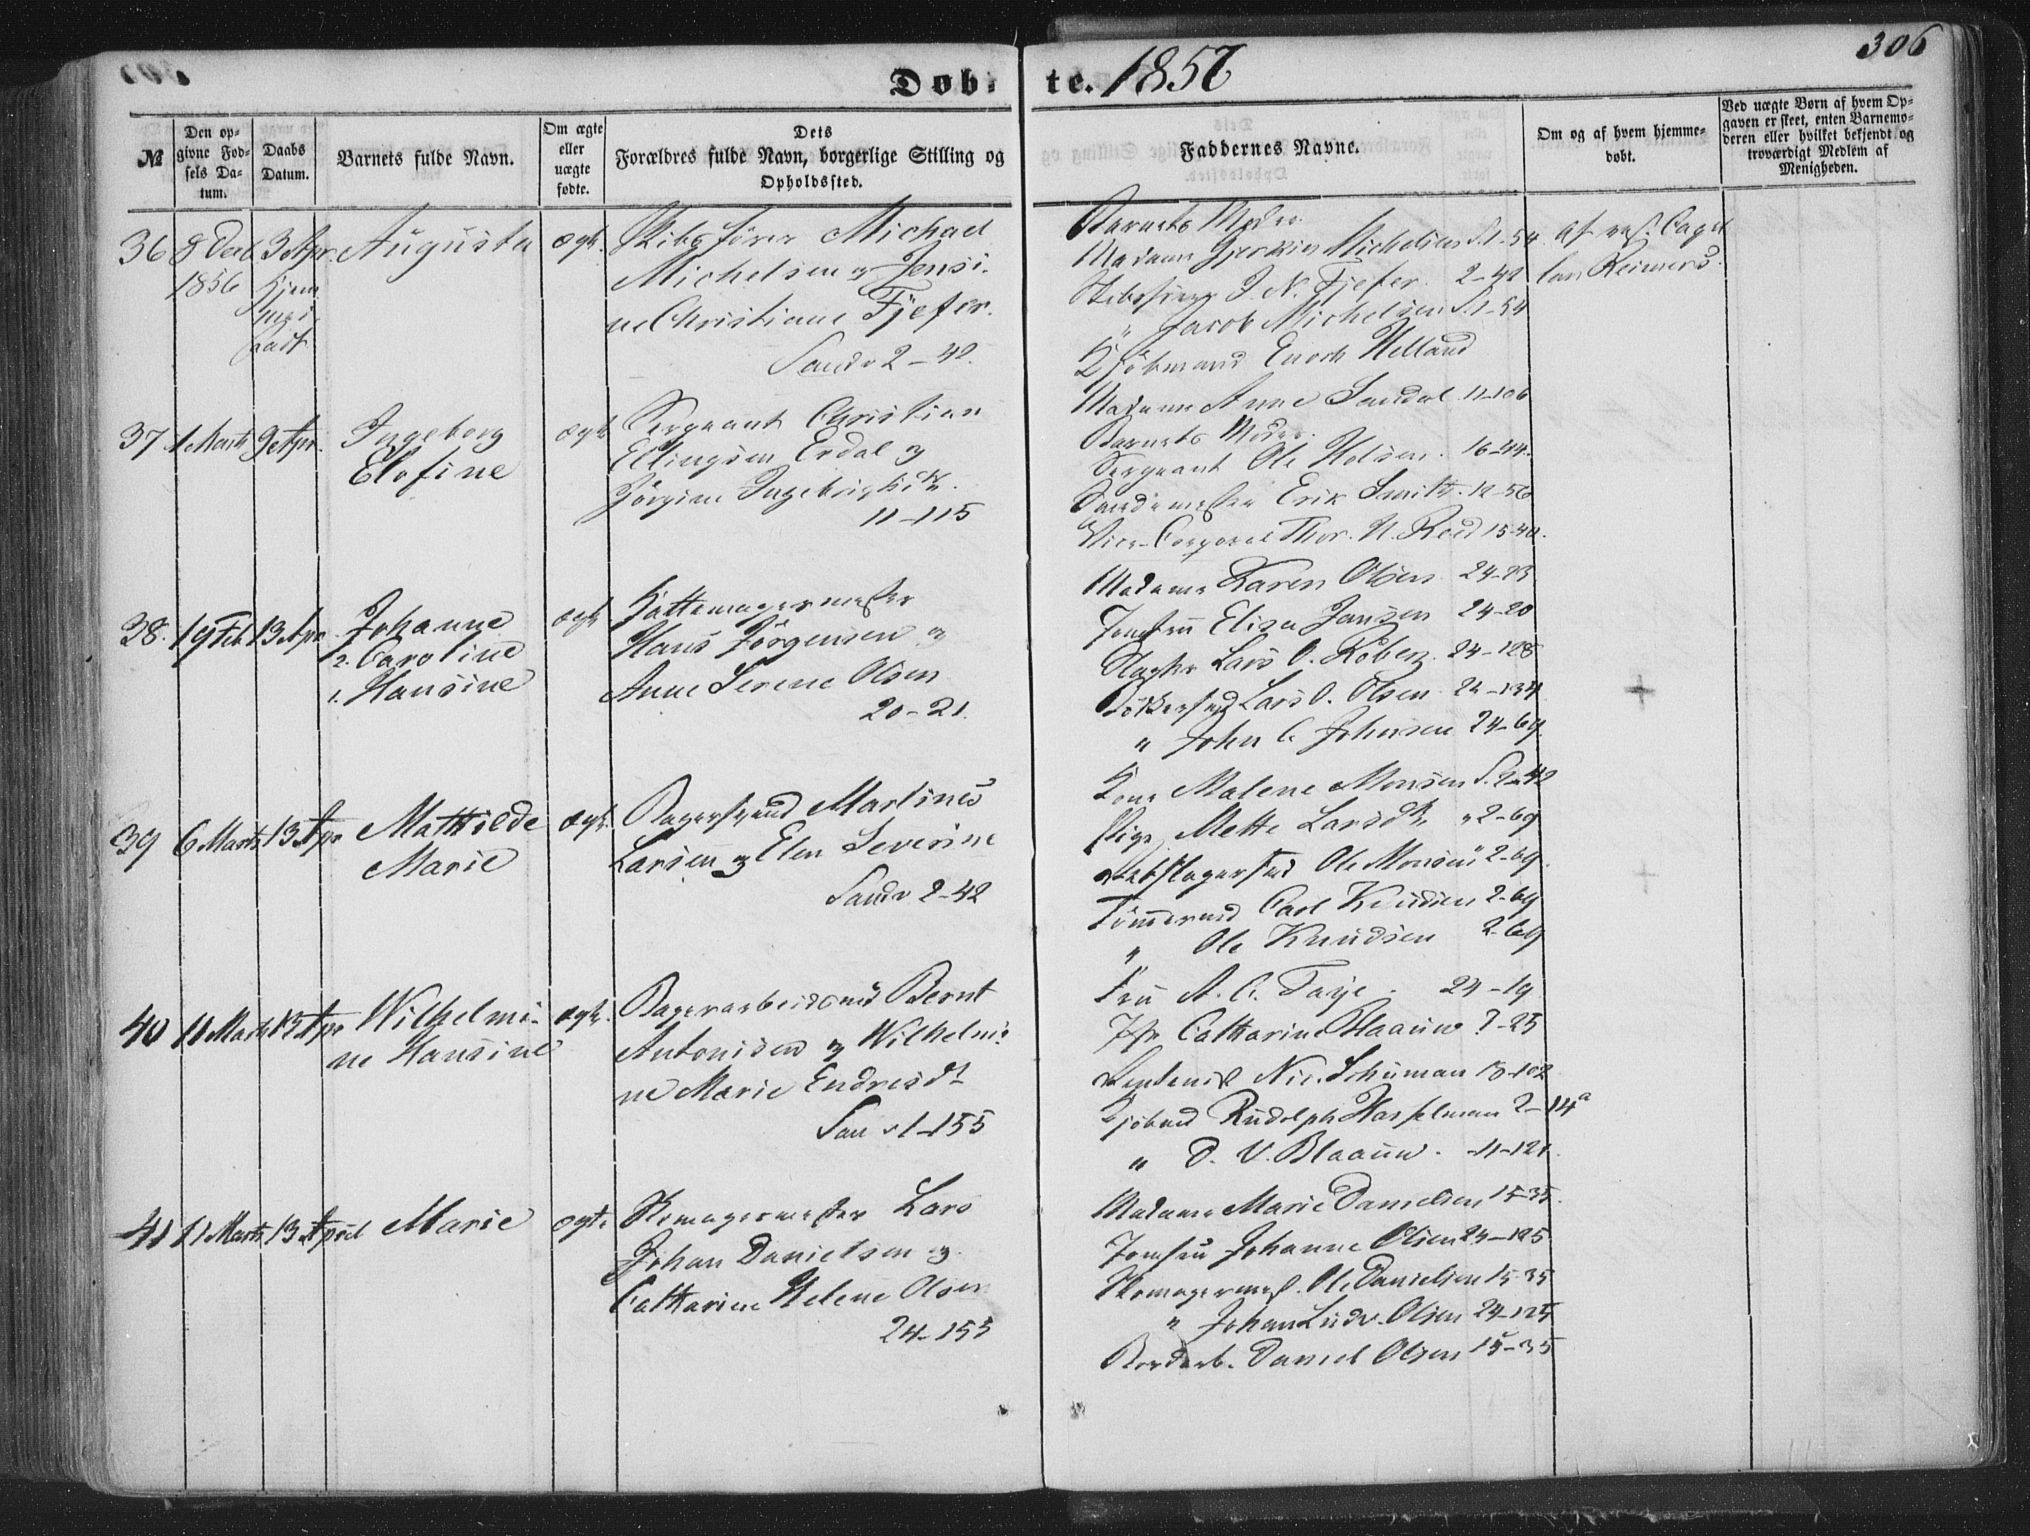 306
Døbte. 1857
№
Den opgivne Fødsels Datum.
Daabs Datum.
Barnets fulde Navn.
Om ægte eller uægte fødte.
Dets Forældres fulde Navn, borgerlige Stilling og Opholdssted.
Faddernes Navne.
Om og af hvem hjemmedøbt.
Ved uægte Børn af hvem Opgaven er skeet, enten Barnemoderen eller hvilket bekjendt og troværdigt Medlem af Menigheden.
36 8 Decb 3 Apr. Augusta ægte.
1856
Skibsfører Michael
Michelsen og Jensi-
ne Christiane Fjefer.
Sandv 2-42.
Barnets Moder
Madame Michelsen S. 1-54
J. N. Fjefer. 2-42
" Jacob Michelsen S. 1-54
Kjøbmand Enoch Helland
af Capel
lan Reimers.
37 1 Marts 9 Apr. Ingeborg
Elofine
ægte
Sergeant Christian
Ellingsen Erdal og
Jørgine Ingebrigtsdtr.
11-115
Madame Anne Sandal 11-106
Barnets Moder.
Sergeant Ole Holsen. 16-44.
Erik Smith. 12-56
Vice-Corporal Thor. N. Reed 15-40.
38. 19 Feb 13 Apr. Johanne
2. Caroline
1. Hansine
ægte
Hattemagermester
Hans Jörgensen og
Anne Serene Olsen
20-21.
Madame Karen Olsen 24-23
Jomfru Elisa Jansen 24-20
Lars O. Röberg. 24-128
Bödkersvend Lars O. Olsen 24-134
" John C. Johnsen 24-69.
+
39 6 Marts 13 Apr Mathilde
Marie
ægte.
Bagersvend Martines
Larsen og Elen Severine
Sandv 2-42
Kone Malene Monsen S. 2-42
Pige Mette Larsdtr " 2-69
Ole Monsen 2-69.
Tömermd Carl Knudsen 2-69
" Ole Knudsen 2-69
+
40 11 Marts 13 Apr Wilhelmi-
ne Hansine
ægte.
Bagerarbeidsmd Bernt
Antonisen og Wilhelmi-
ne Marie Endresdt
San v 1-155
Fru A. C. Faye. 24-19
Jfr Catharine Blaauw 2-25
Nic. Schuman 18-102
Kjöbmd Rudolph Hasselman 2-14a
" D. V. Blaauw. 11-121.
41 11 Marts 13 April Marie ægte
Skomagermester Lars
Johan Danielsen og
Cathrine Helene Olsen
24-155
Madame Marie Danielsen 15-35.
Jomfru Johanne Olsen 24-125
Skomagermest. Ole Danielsen 15-35
" Johan Ludv. Olsen 24-125
Daniel Olsen 15-35